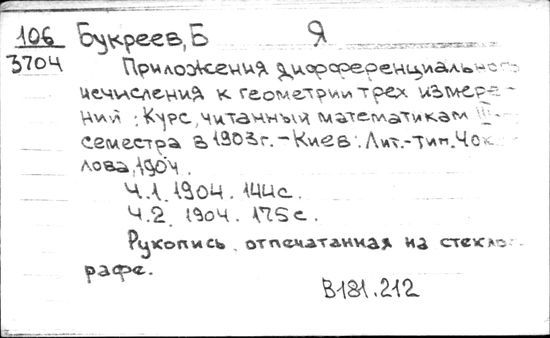 106 Букреев, Б Я
3704 Приложения дифференциального
исчисления к геометрии трех измере-
ний: Курс, читанный математикам III
семестра в 1903г. - Киев: Лит.-тип. Чоко
лова, 1904.
Ч.1. 1904. 144с.
Ч.2. 1904. 175с.
Рукопись, отпечатанная на стекло-
рафе.
В181.212